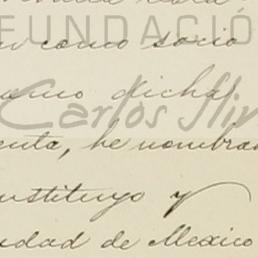 FUNDACIÓ
como socio
como dicha
Carlos Sli
enta, he nombra
nstituyo y
udad de Mexico